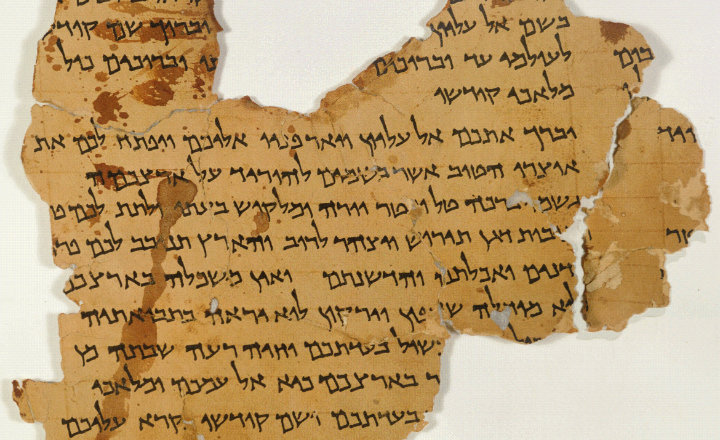 בשם אל עליון וברוך שם קודשו
לעולמי עד וברוכים וברוכים כול
מלאכי קודשו
יברך אתכם אל עליון ויאר פניו אליכם ויפתח לכם את
אוצרו הטוב אשר בשמים להוריד על ארצכמה
גשמי ברכה טל ומטר יורה ומלקוש בעתו ולתת לכם
דגן תירוש ויצהר לרוב והארץ תנובב לכם
ואכלתם והדשנתם ואין משכלה בארצכם
ולא מוחלה שדפון וירקון לוא יראה בתבואתיה
בעדתכם וחיה רעה שבתה מן
בארצכם כיא אל עמכם ומלאכי
בעדתכם ושם קודשו נקרא עליכם